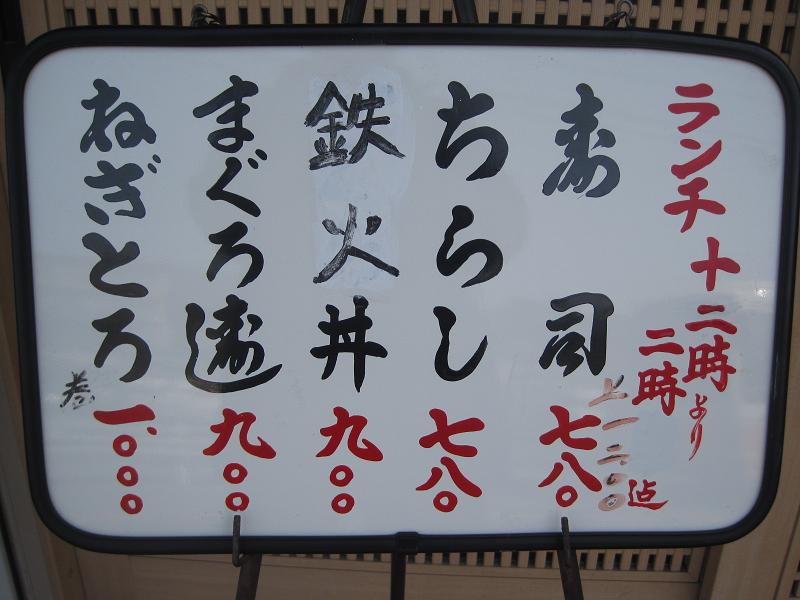 ランチ十二時より
二時迠
寿司 七八〇
上一二〇〇
ちらし 七八〇
鉄火丼 九〇〇
まぐろ 九〇〇
ねぎとろ 一、〇〇〇
巻